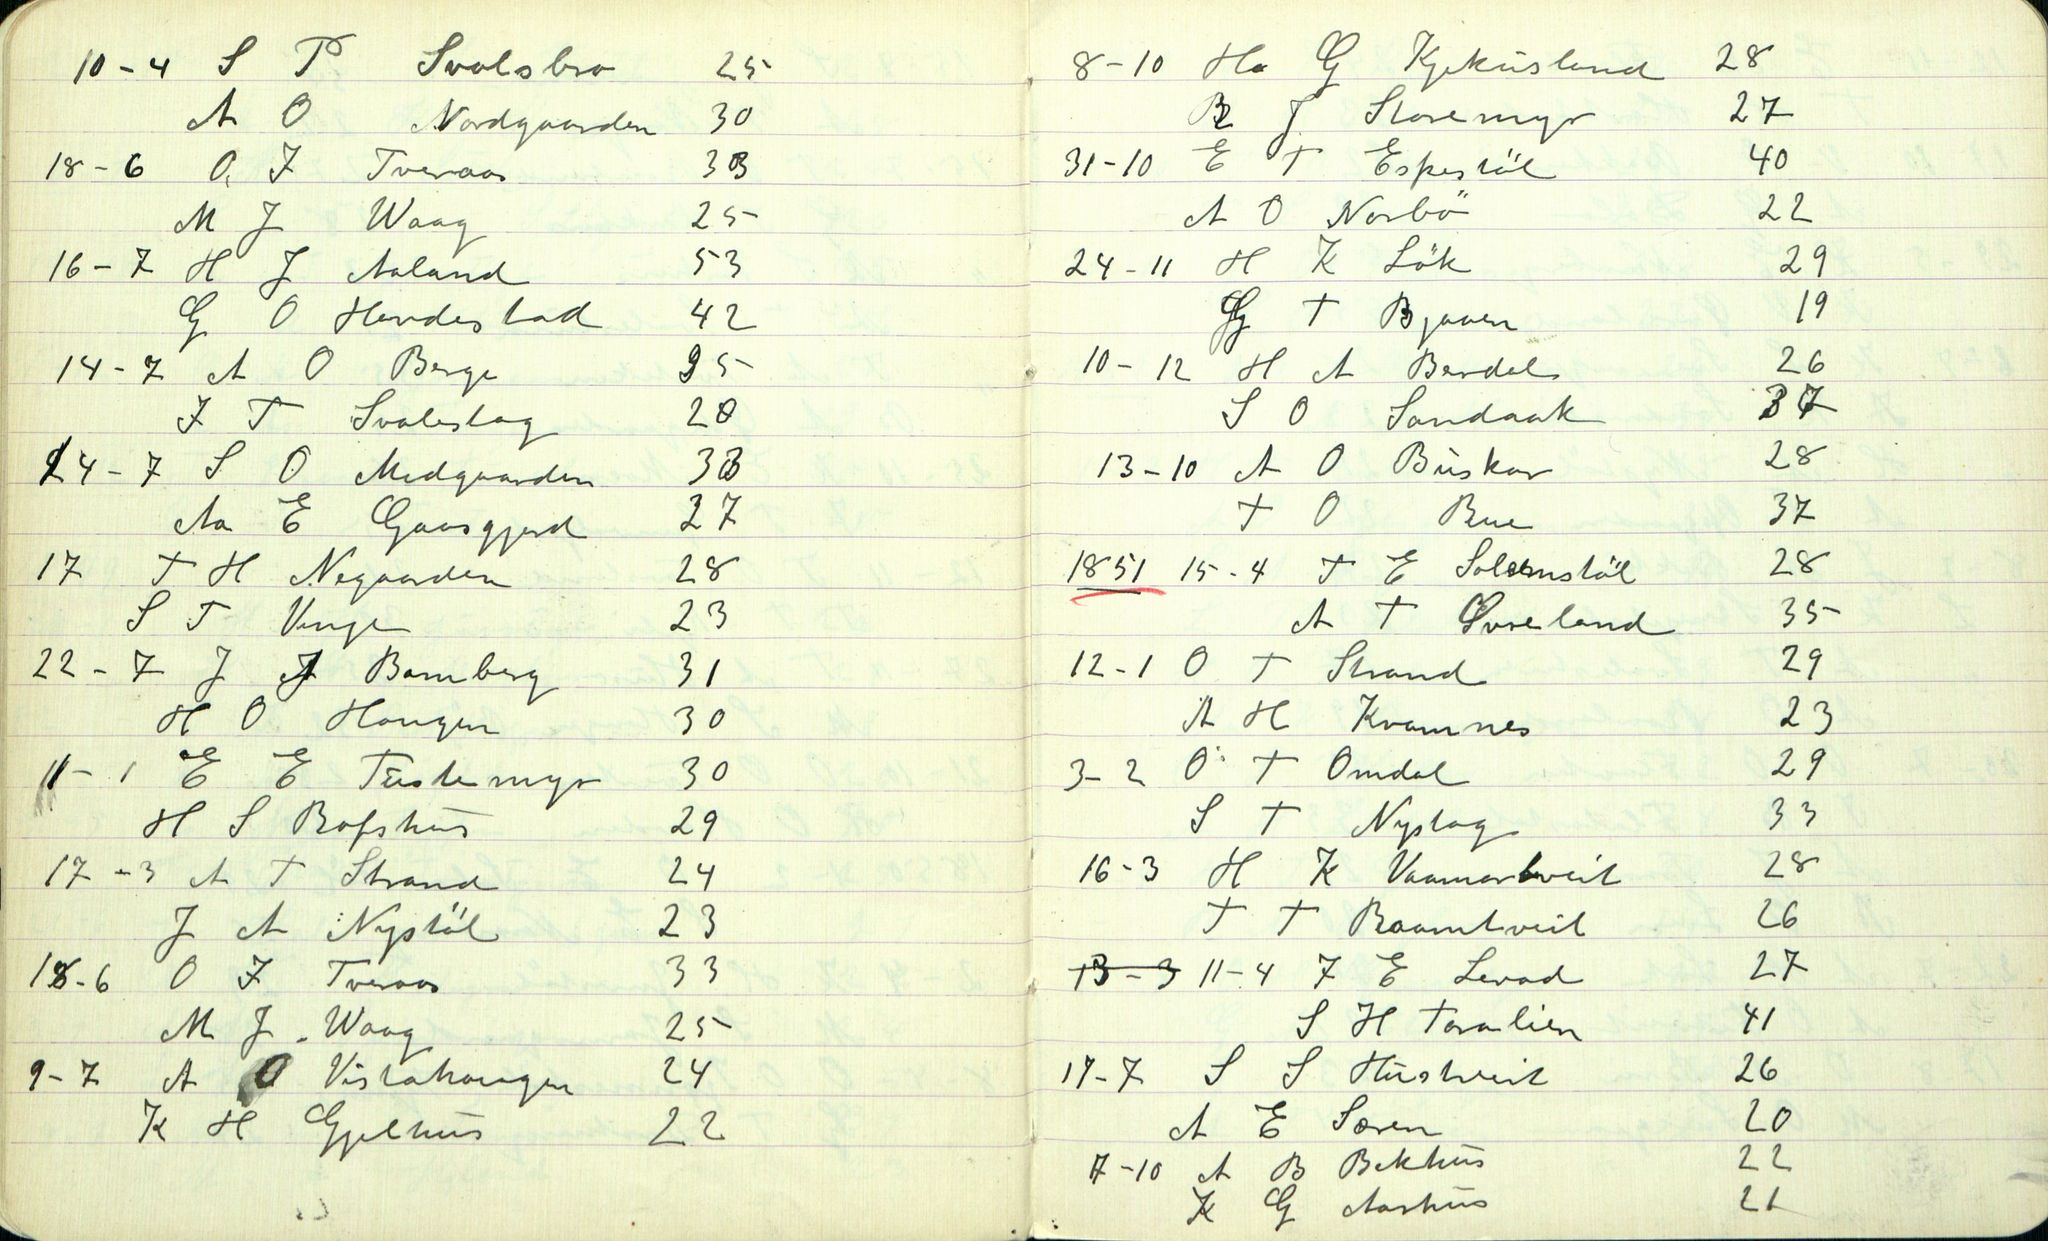 10-4 S P Svalsbro 25
A O Nordgaarden 30
18-6 O. F Tveraas 33
M J Waag 25
16-7 H J Aaland 53
G O Hevdestad 42
14-7 A O Berge 25
F T Svalestog 28
24-7 S O Medgaarden 33
Aa E Gaasgjerd 27
17 T H Negaarden 28
S T Vinge 23
22-7 J J Bamberg 31
H O Haugen 30
11-1 E E Tüstemyr 30
H S Bofshüs 29
17-3 A T Strand 24
J A Nystöl 23
18-6 O F Tveraas 33
M J. Waag 25
9-7 A O Vistahaugen 24
K H Gjelhüs 22
8-10 Ha G Kjeküsland 28
B J Storemyr 27
31-10 E T Espestöl 40
A O Norbö 22
24-11 H K Lök 29
G T Bjaaen 19
10-12 H A Berdal 26
S O Sandaak 37
13-10 A O Büskar 28
T O Bue 37
1851 15-4 T E Solemstöl 28
A T Overland 35
12-1 O T Strand 29
A H Kvamnes 23
3-2 O T Omdal 29
S T Nystog 33
16-3 H K Vaamartveit 28
T T Raamtveit 26
13-3 11-4 F E Levad 27
S H Taralien 41
17-7 S S Hüstveit 26
A E Søren 20
7-10 A B Bekhüs 22
K G Aarhüs 21